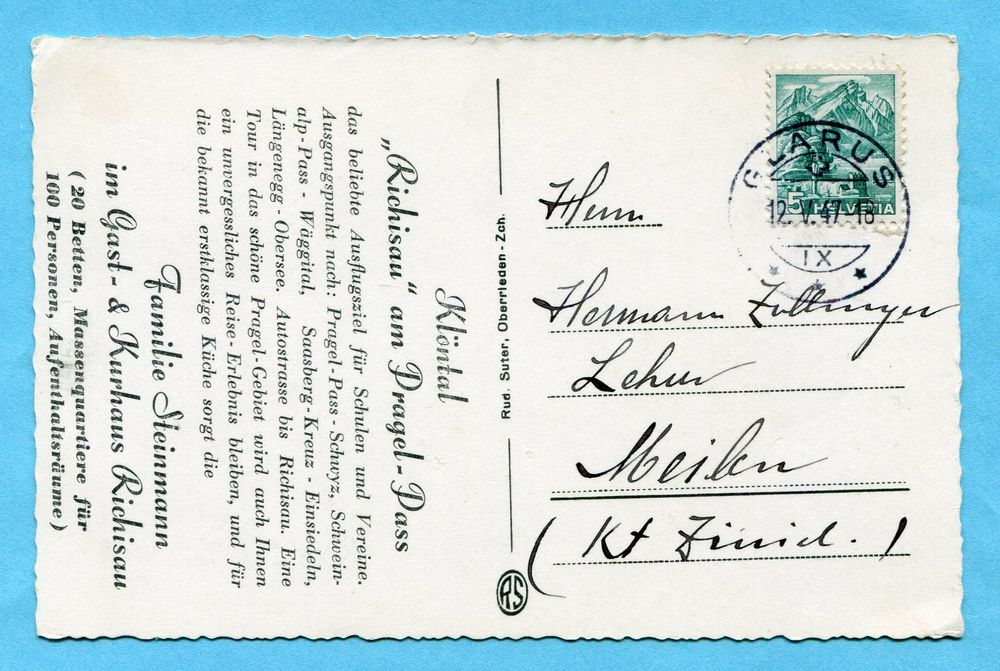 Klöntal
„Richisau“ am Pragel-Pass
das beliebte Ausflugsziel für Schulen und Vereine.
Ausgangspunkt nach: Pragel-Pass - Schwyz, Schwein-
alp-Pass - Wäggital, Saasberg-Kreuz - Einsiedeln,
Längenegg - Obersee. Autostrasse bis Richisau. Eine
Tour in das schöne Pragel-Gebiet wird auch Ihnen
ein unvergessliches Reise-Erlebnis bleiben, und für
die bekannt erstklassige Küche sorgt die
Familie Steinmann
im Gast- & Kurhaus Richisau
(20 Betten, Massenquartiere für
100 Personen, Aufenthaltsräume)
Rud. Suter, Oberrieden-Zch.
RS
GLARUS
12.V.47-18
IX
5 HELVETIA
Herrn
Hermann Zollinger
Lehrer
Meilen
(Kt Zürich.)